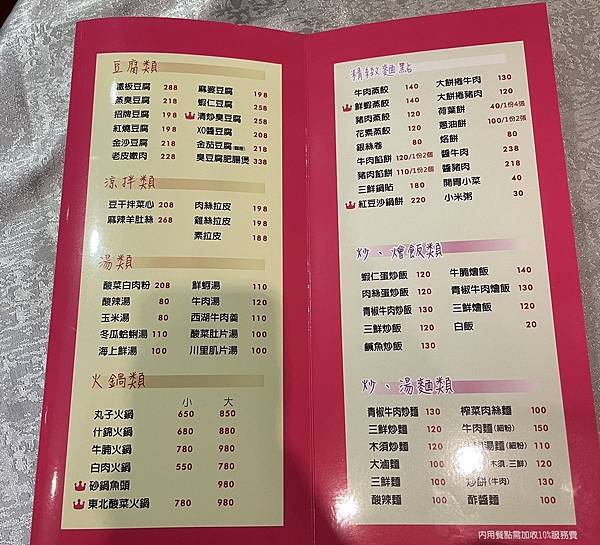 豆腐類
鐵板豆腐 288 麻婆豆腐 198
蒸臭豆腐 218 蝦仁豆腐 258
招牌豆腐 198 清炒臭豆腐 258
紅燒豆腐 198 XO醬豆腐 208
金沙豆腐 218 金茄豆腐 218
老皮嫩肉 228 臭豆腐肥腸煲 338
涼拌類
豆干拌菜心 208 肉絲拉皮 198
麻辣羊肚絲 268 雞絲拉皮 198
素拉皮 188
湯類
酸菜白肉粉 208 鮮蝦湯 110
酸辣湯 80 牛肉湯 120
玉米湯 80 西湖牛肉羹 110
冬瓜蛤蜊湯 110 酸菜肚片湯 100
海上鮮湯 100 川里肌片湯 100
火鍋類
小 大
丸子火鍋 650 850
什錦火鍋 680 880
牛腩火鍋 780 980
白肉火鍋 550 780
砂鍋魚頭 980
東北酸菜火鍋 780 980
精緻麵點
牛肉蒸餃 140 大餅捲牛肉 130
鮮蝦蒸餃 140 大餅捲豬肉 120
豬肉蒸餃 110 荷葉餅 40/1份4張
花素蒸餃 110 蔥油餅 100/1份2張
銀絲卷 80 烙餅 80
牛肉餡餅 120/1份2個 醬牛肉 238
豬肉餡餅 110/1份2個 醬豬肉 218
三鮮鍋貼 180 開胃小菜 40
紅豆沙鍋餅 220 小米粥 30
炒、燴飯類
蝦仁蛋炒飯 120 牛腩燴飯 140
肉絲蛋炒飯 120 青椒牛肉燴飯 130
青椒牛肉炒飯 130 三鮮燴飯 120
三鮮炒飯 120 白飯 20
鹹魚炒飯 130
炒、湯麵類
青椒牛肉炒麵 130 榨菜肉絲麵 100
三鮮炒麵 120 牛肉麵(細粉) 150
木須炒麵 120 湯麵(細粉) 110
大滷麵 100 木須.三鮮) 120
三鮮麵 100 炒餅(牛肉) 130
酸辣麵 100 酢醬麵 100
內用餐點需加收10%服務費